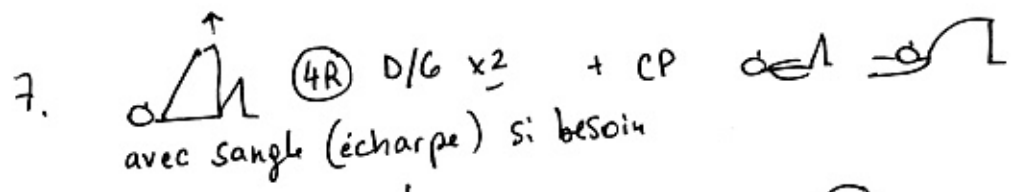 7. 4R D/G x2 + CP
avec sangle (écharpe) si besoin